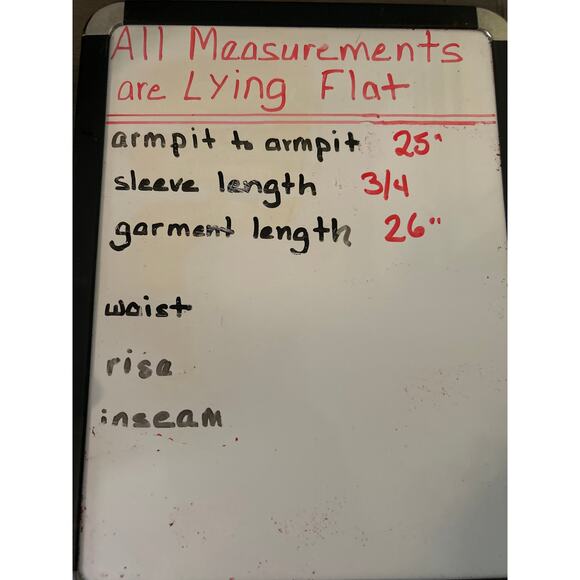 All Measurements
are Lying Flat
armpit to armpit 25"
sleeve length 3/4
garment length 26"
waist
rise
inseam